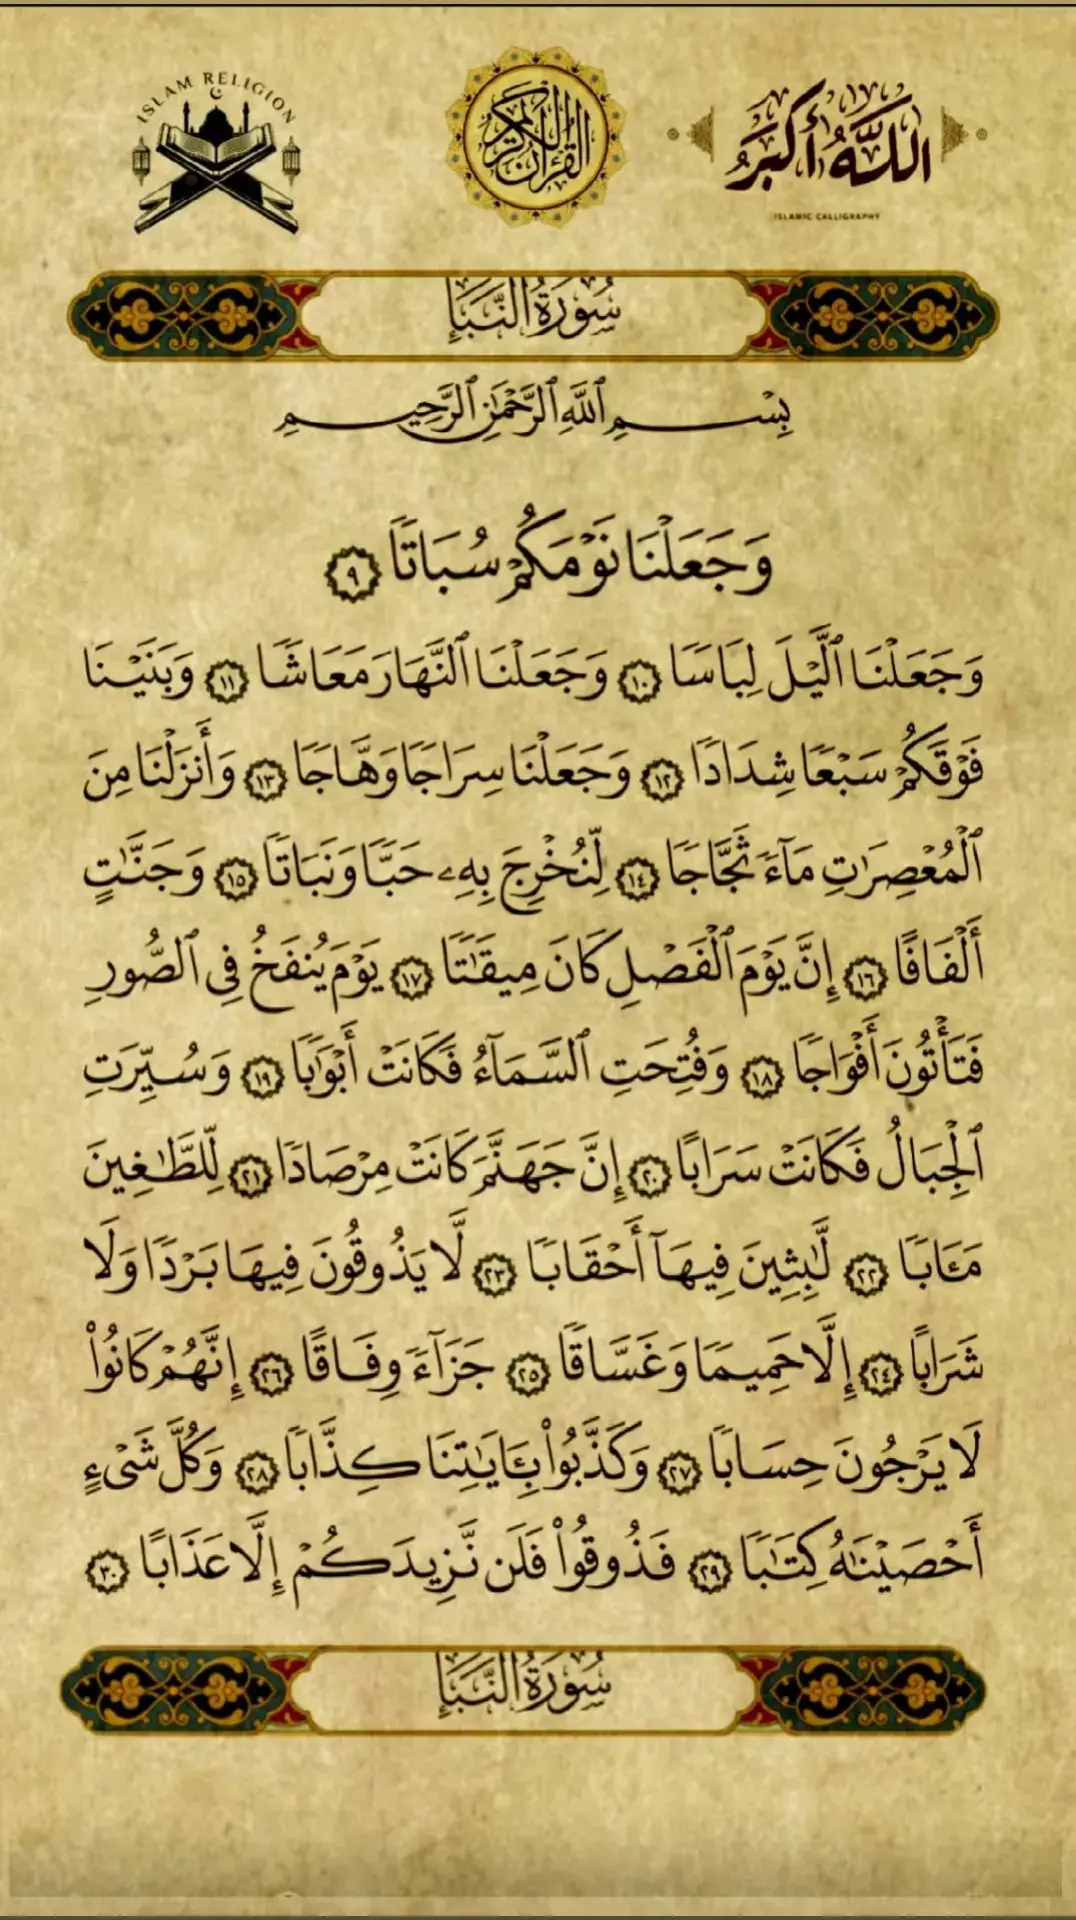 ISLAM RELIGION
القرآن الكريم
اللَّهُ أَكْبَرُ
ISLAMIC CALLIGRAPHY
سُورَةُ النَّبَإِ
بِسْمِ ٱللَّهِ ٱلرَّحْمَٰنِ ٱلرَّحِيمِ
وَجَعَلْنَا نَوْمَكُمْ سُبَاتًا ٩
وَجَعَلْنَا ٱلَّيْلَ لِبَاسًا ١٠ وَجَعَلْنَا ٱلنَّهَارَ مَعَاشًا ١١ وَبَنَيْنَا
فَوْقَكُمْ سَبْعًا شِدَادًا ١٢ وَجَعَلْنَا سِرَاجًا وَهَّاجًا ١٣ وَأَنزَلْنَا مِنَ
ٱلْمُعْصِرَٰتِ مَآءً ثَجَّاجًا ١٤ لِّنُخْرِجَ بِهِۦ حَبًّا وَنَبَاتًا ١٥ وَجَنَّٰتٍ
أَلْفَافًا ١٦ إِنَّ يَوْمَ ٱلْفَصْلِ كَانَ مِيقَٰتًا ١٧ يَوْمَ يُنفَخُ فِى ٱلصُّورِ
فَتَأْتُونَ أَفْوَاجًا ١٨ وَفُتِحَتِ ٱلسَّمَآءُ فَكَانَتْ أَبْوَٰبًا ١٩ وَسُيِّرَتِ
ٱلْجِبَالُ فَكَانَتْ سَرَابًا ٢٠ إِنَّ جَهَنَّمَ كَانَتْ مِرْصَادًا ٢١ لِّلطَّٰغِينَ
مَـَٔابًا ٢٢ لَّٰبِثِينَ فِيهَآ أَحْقَابًا ٢٣ لَّا يَذُوقُونَ فِيهَا بَرْدًا وَلَا
شَرَابًا ٢٤ إِلَّا حَمِيمًا وَغَسَّاقًا ٢٥ جَزَآءً وِفَاقًا ٢٦ إِنَّهُمْ كَانُوا۟
لَا يَرْجُونَ حِسَابًا ٢٧ وَكَذَّبُوا۟ بِـَٔايَٰتِنَا كِذَّابًا ٢٨ وَكُلَّ شَىْءٍ
أَحْصَيْنَٰهُ كِتَٰبًا ٢٩ فَذُوقُوا۟ فَلَن نَّزِيدَكُمْ إِلَّا عَذَابًا ٣٠
سُورَةُ النَّبَإِ